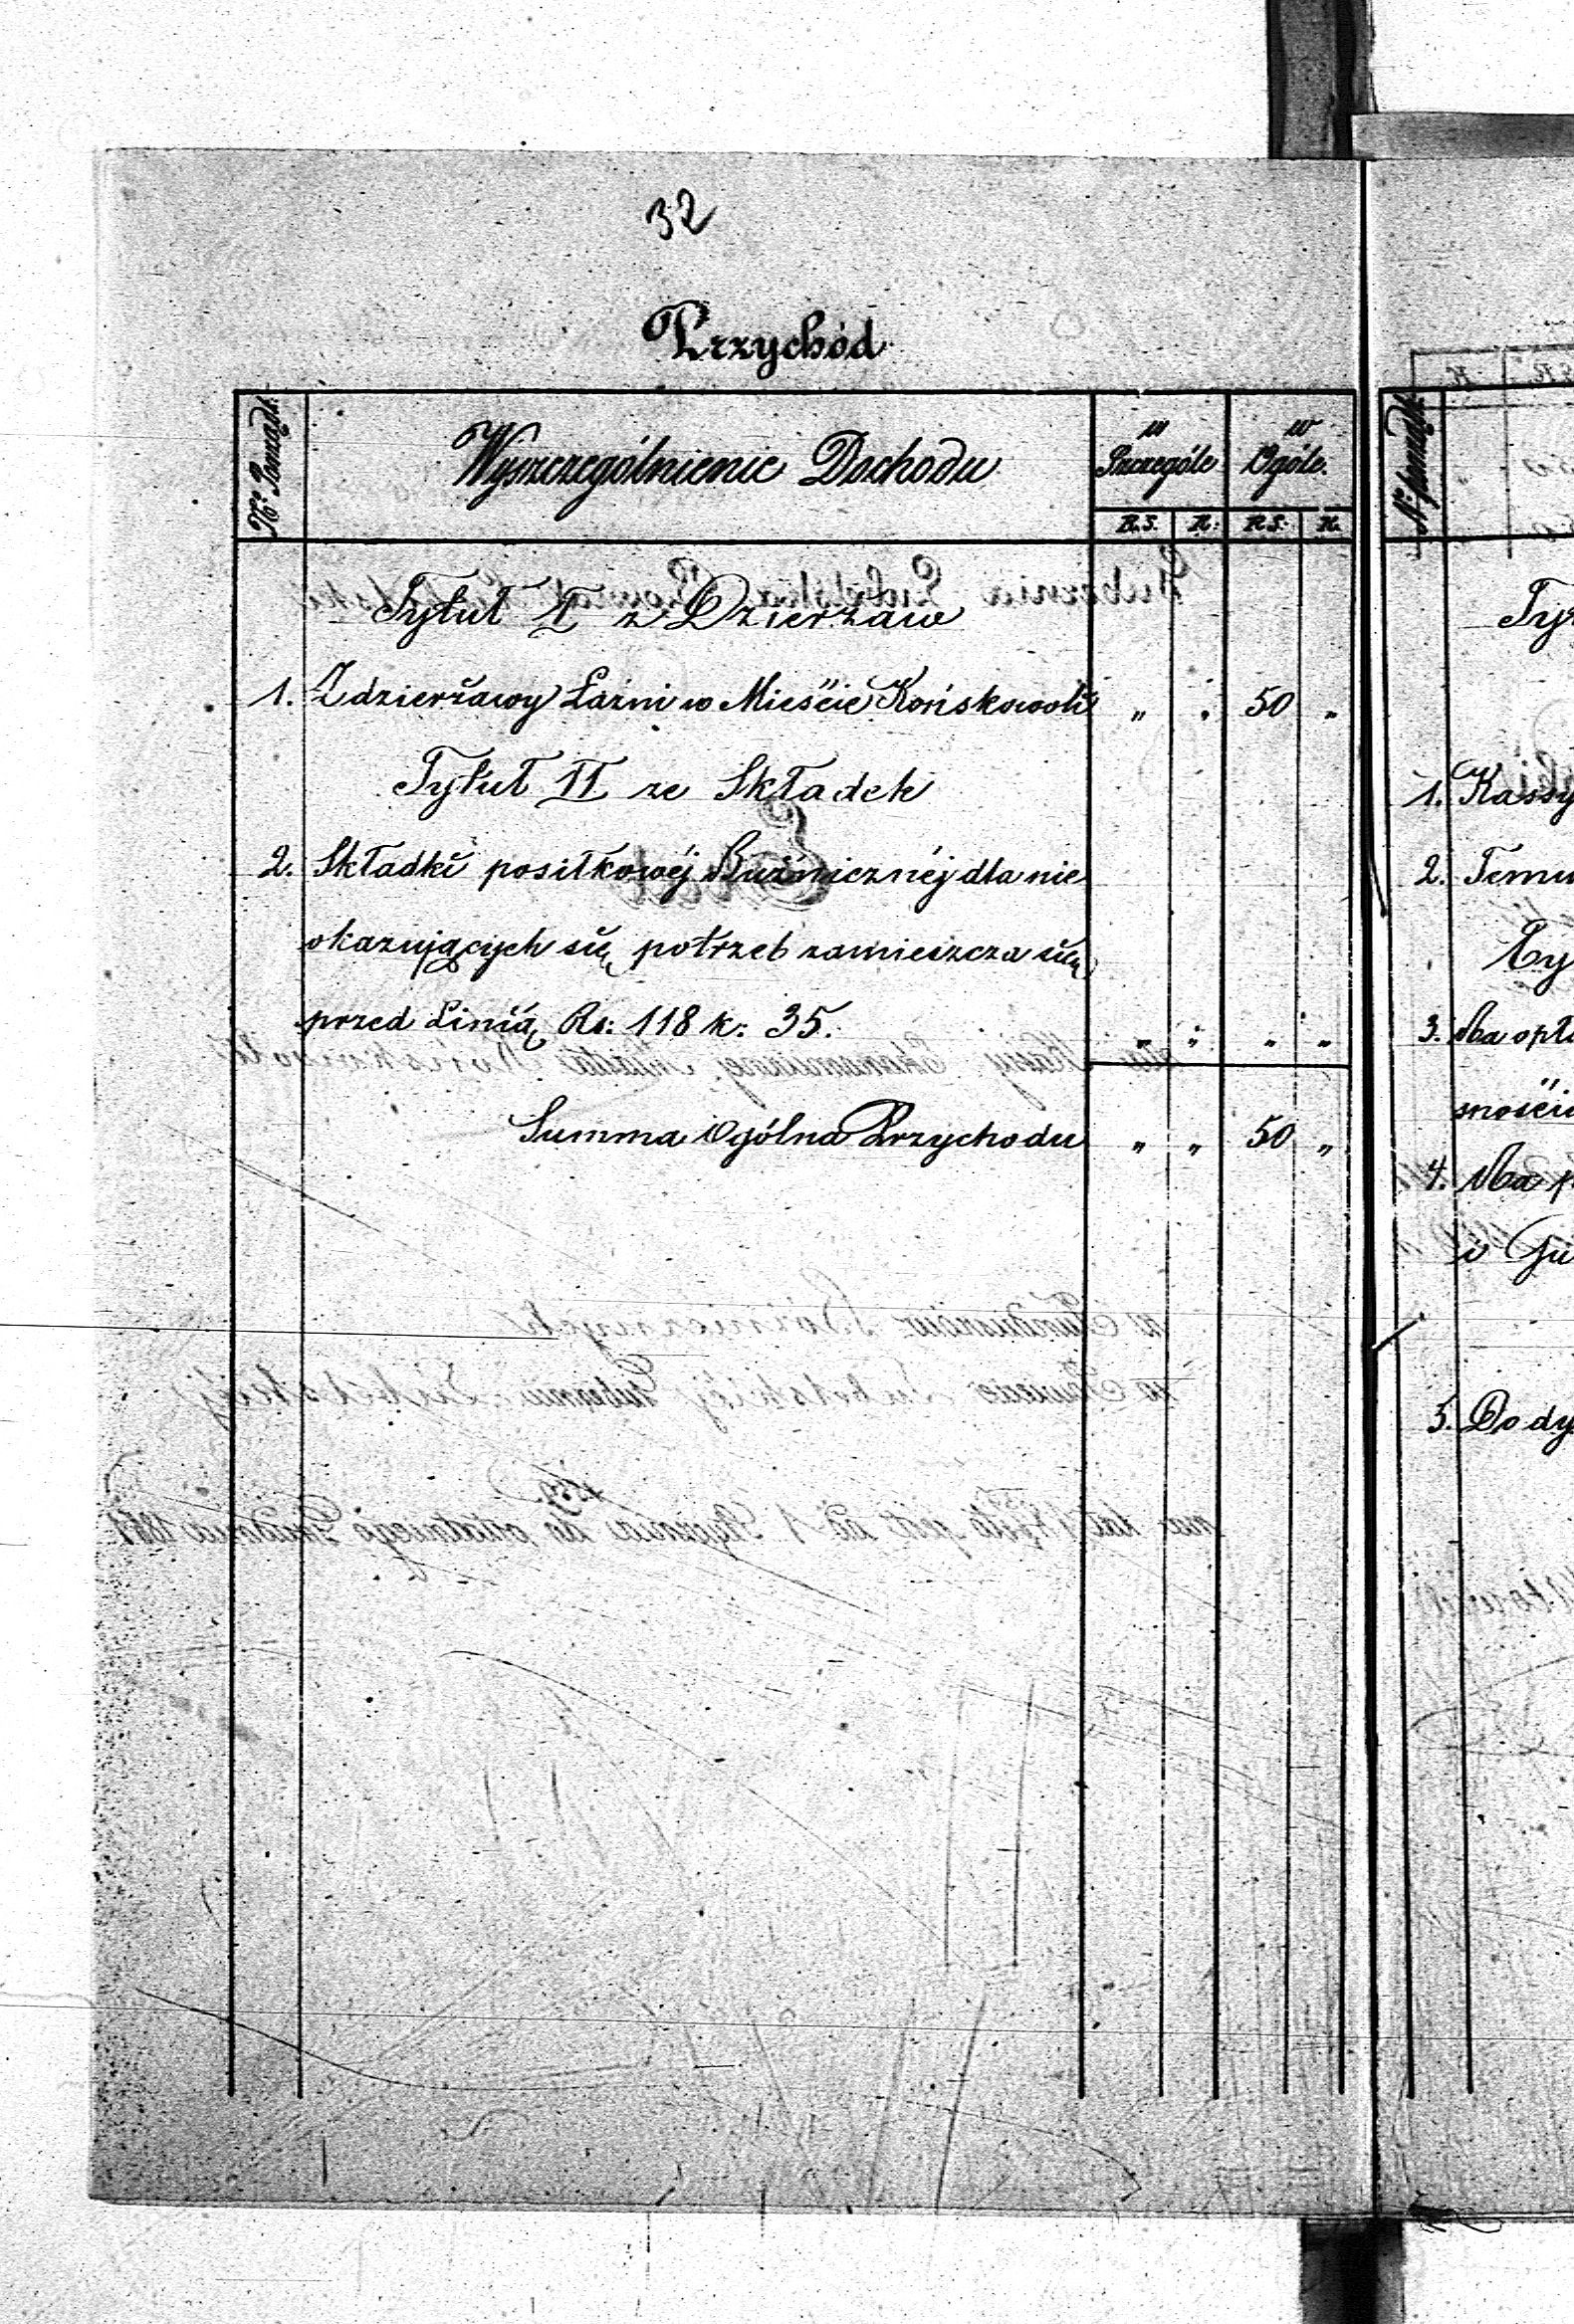 32
Przychód
No. Porządk. Wyszczególnienie Dochodu w Szczególe w Ogóle.
R.S. K: R.S: K.
Tytuł I z Dzierżaw
1. Z dzierżawy Łaźni w Mieście Końskowoli " " 50 "
Tytuł II ze Składek
2. Składki posiłkowéj Bużnicznéj dla nie
okazujących się potrzeb zamieszcza się
przed Linią Rs: 118 k: 35. " " " "
Summa Ogólna Przychodu " " 50 "
No. Porządk.
1. Kassy
2. Temu
3. Na opł
4. Na p
5. Do dy